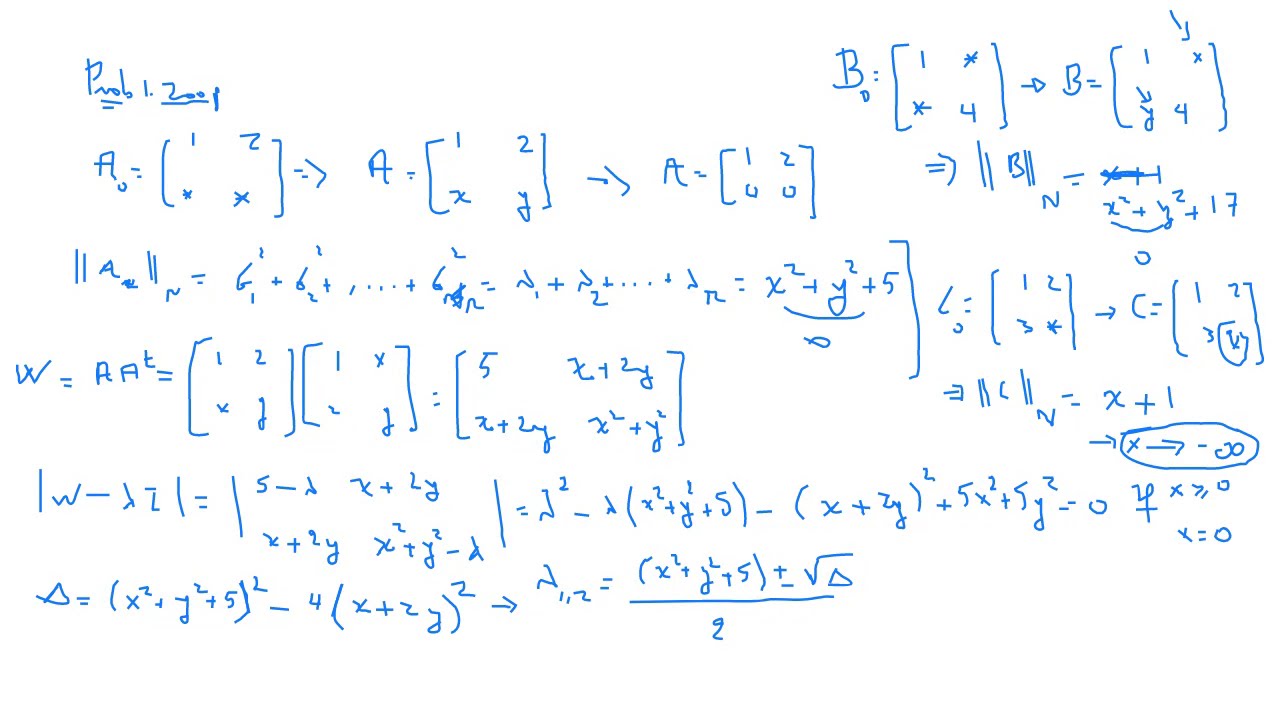 Prob 1. 200 p
A₀ = [ 1 2 ; * * ] => A = [ 1 2 ; x y ] → A = [ 1 2 ; 0 0 ]
‖A‖_N = σ₁² + σ₂² + , ... + σ_r² = λ₁ + λ₂ + ... + λ_r = x² + y² + 5
0
W = A A^t = [ 1 2 ; x y ] [ 1 x ; 2 y ] = [ 5 x+2y ; x+2y x²+y² ]
|W − λI| = | 5−λ x+2y ; x+2y x²+y²−λ | = λ² − λ(x²+y²+5) − (x+2y)² + 5x² + 5y² = 0
Δ = (x²+y²+5)² − 4(x+2y)² → λ₁,₂ = ((x²+y²+5) ± √Δ) / 2
B₀ = [ 1 * ; * 4 ] → B = [ 1 x ; y 4 ]
=> ‖B‖_N = x² + y² + 17
0
C₀ = [ 1 2 ; 3 * ] → C = [ 1 2 ; 3 x ]
=> ‖C‖_N = x + 1
→ x → −∞
If x ≥ 0
x = 0